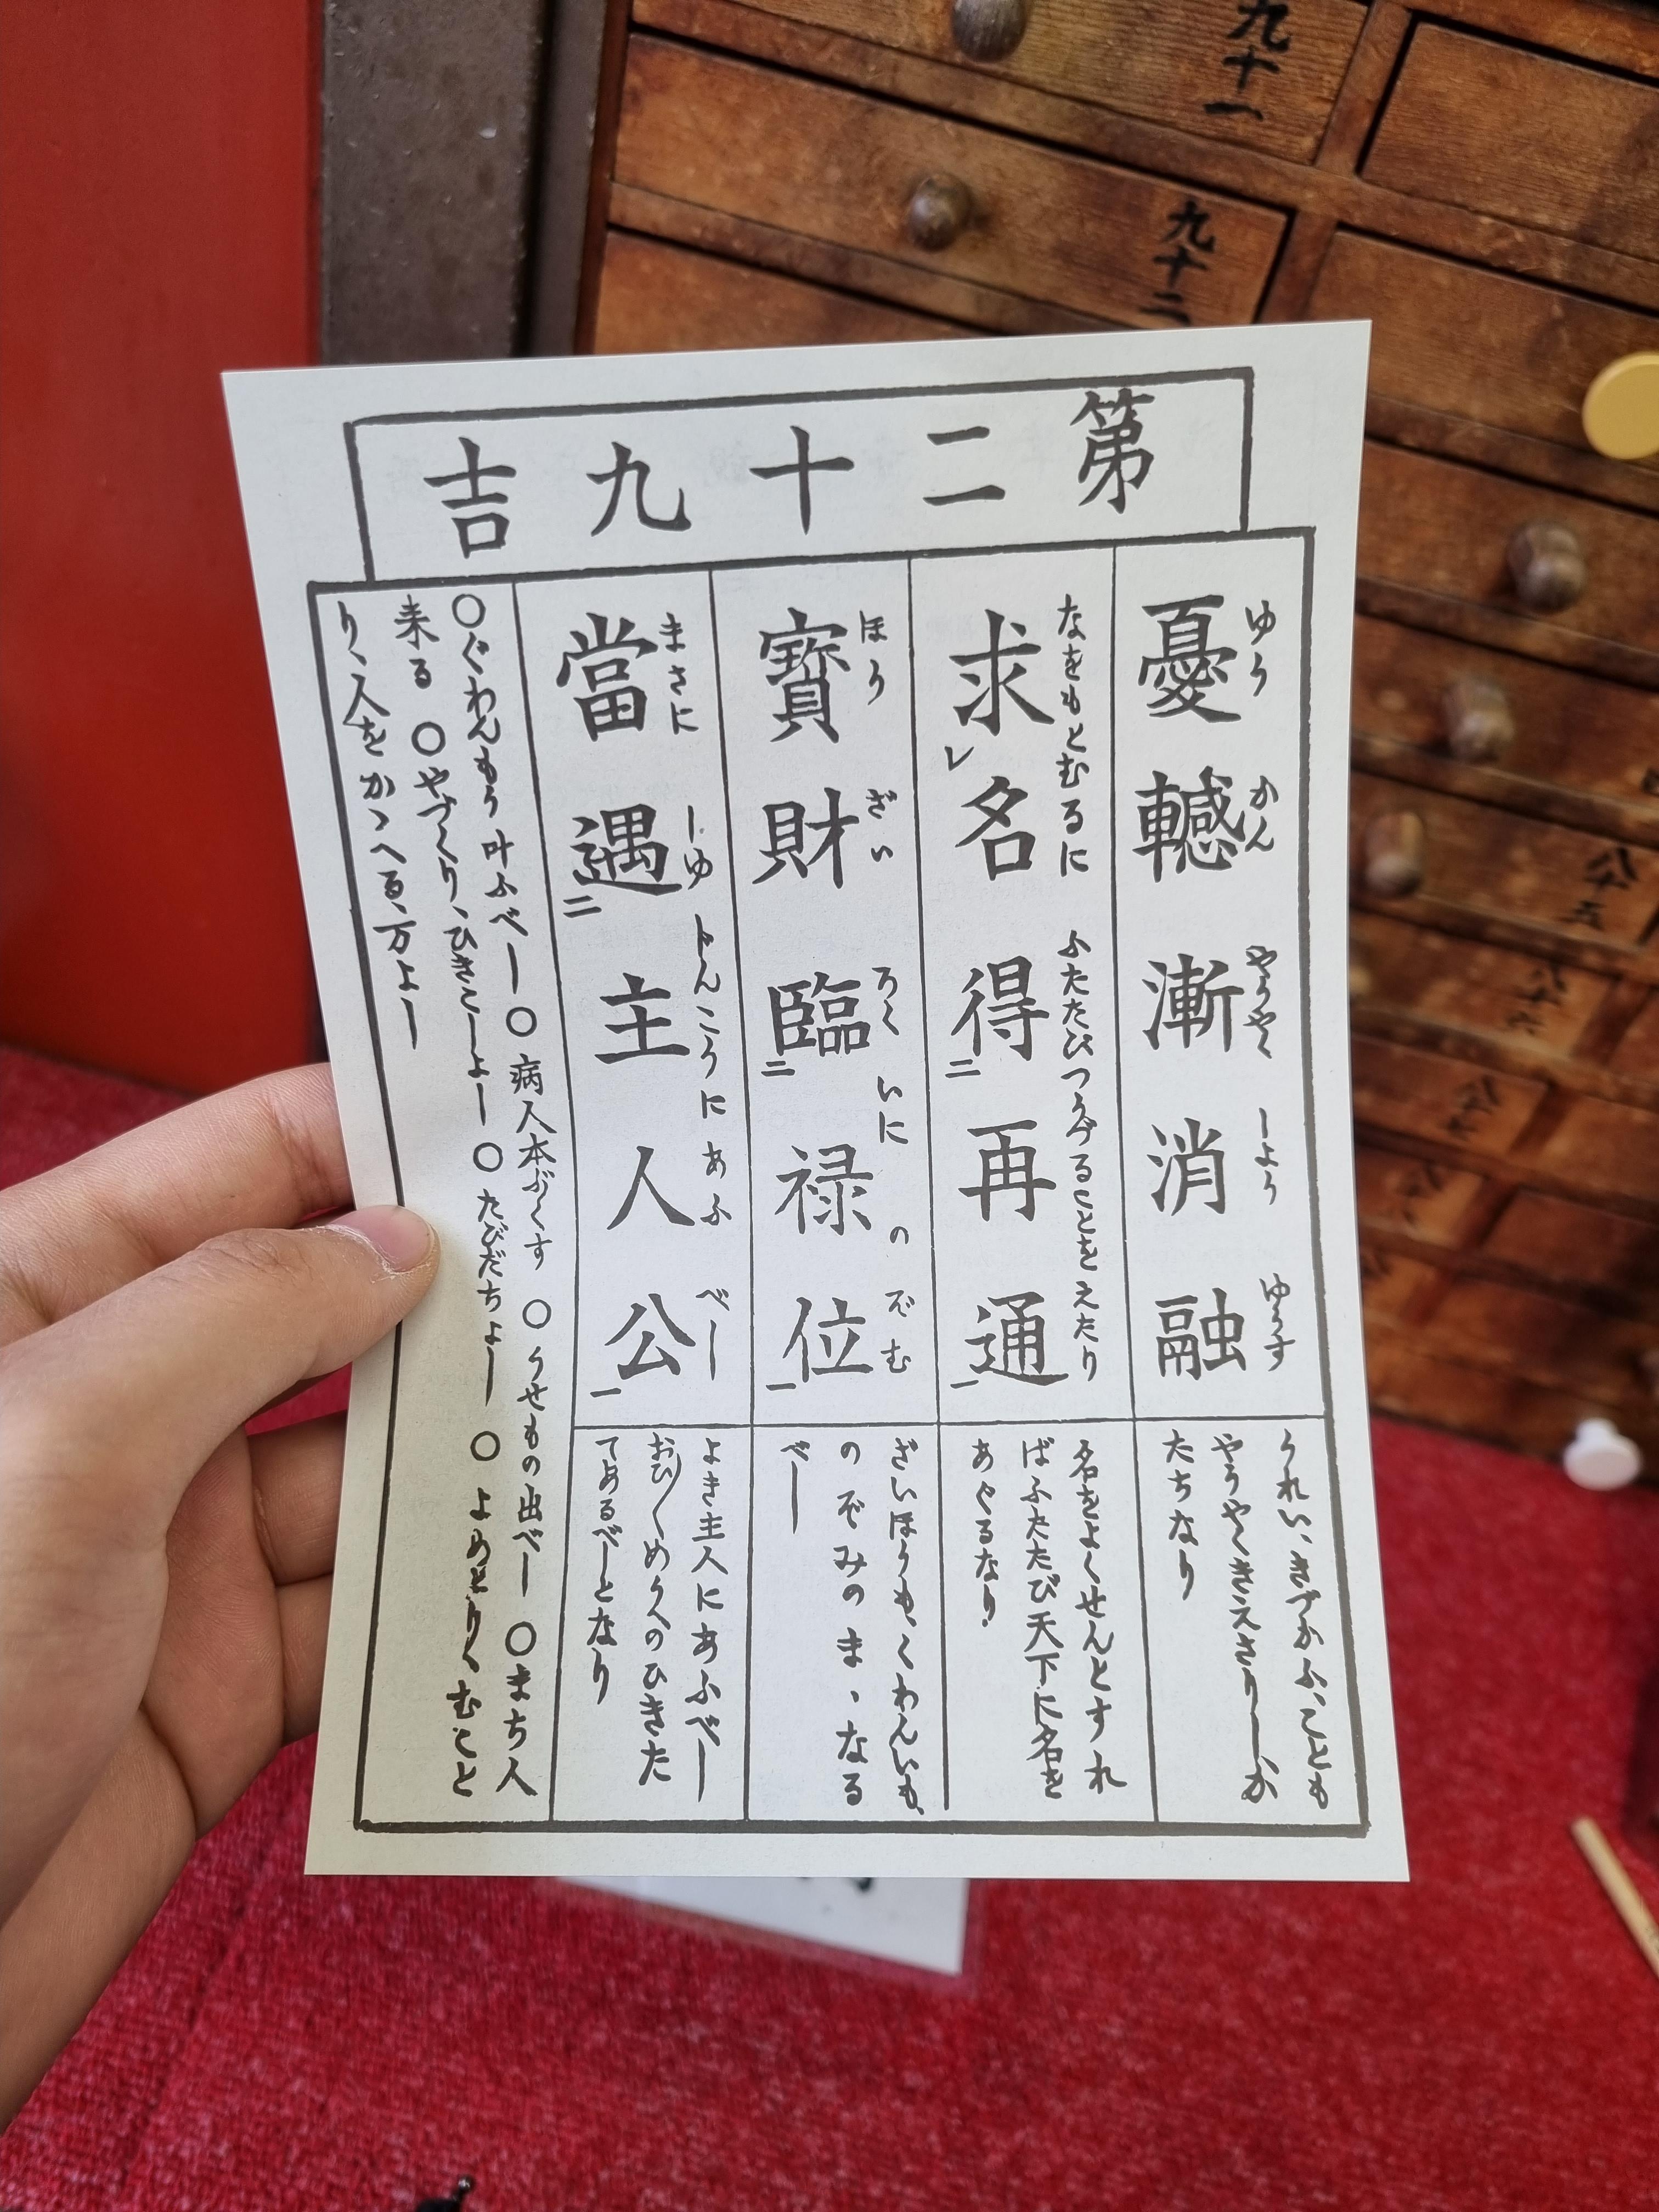 九十一
九十二
八十五
八十六
第二十九吉
憂轗漸消融
ゆう かん やうやく しよう ゆうす
求レ名得二再通一
なをもとむるに ふたたびつうずることをえたり
寶財臨二禄位一
ほう ざい ろくいに のぞむ
當遇二主人公一
まさに しゆじんこうに あふべし
うれい、きづかふ、ことも
やうやくきえさりしかたちなり
名をよくせんとすれ
ばふたたび天下に名を
あぐるなり
ざいほうも、くわんいも、
のぞみのまゝなる
べし
よき主人にあふべし
おひ〳〵めうへのひきた
てあるべしとなり
〇ぐわんもう叶ふべし〇病人本ぶくす 〇うせもの出べし〇まち人
来る 〇やづくり、ひきこしよし〇たびだちよし 〇よめとり、むこと
り、人をかゝへる、万よし